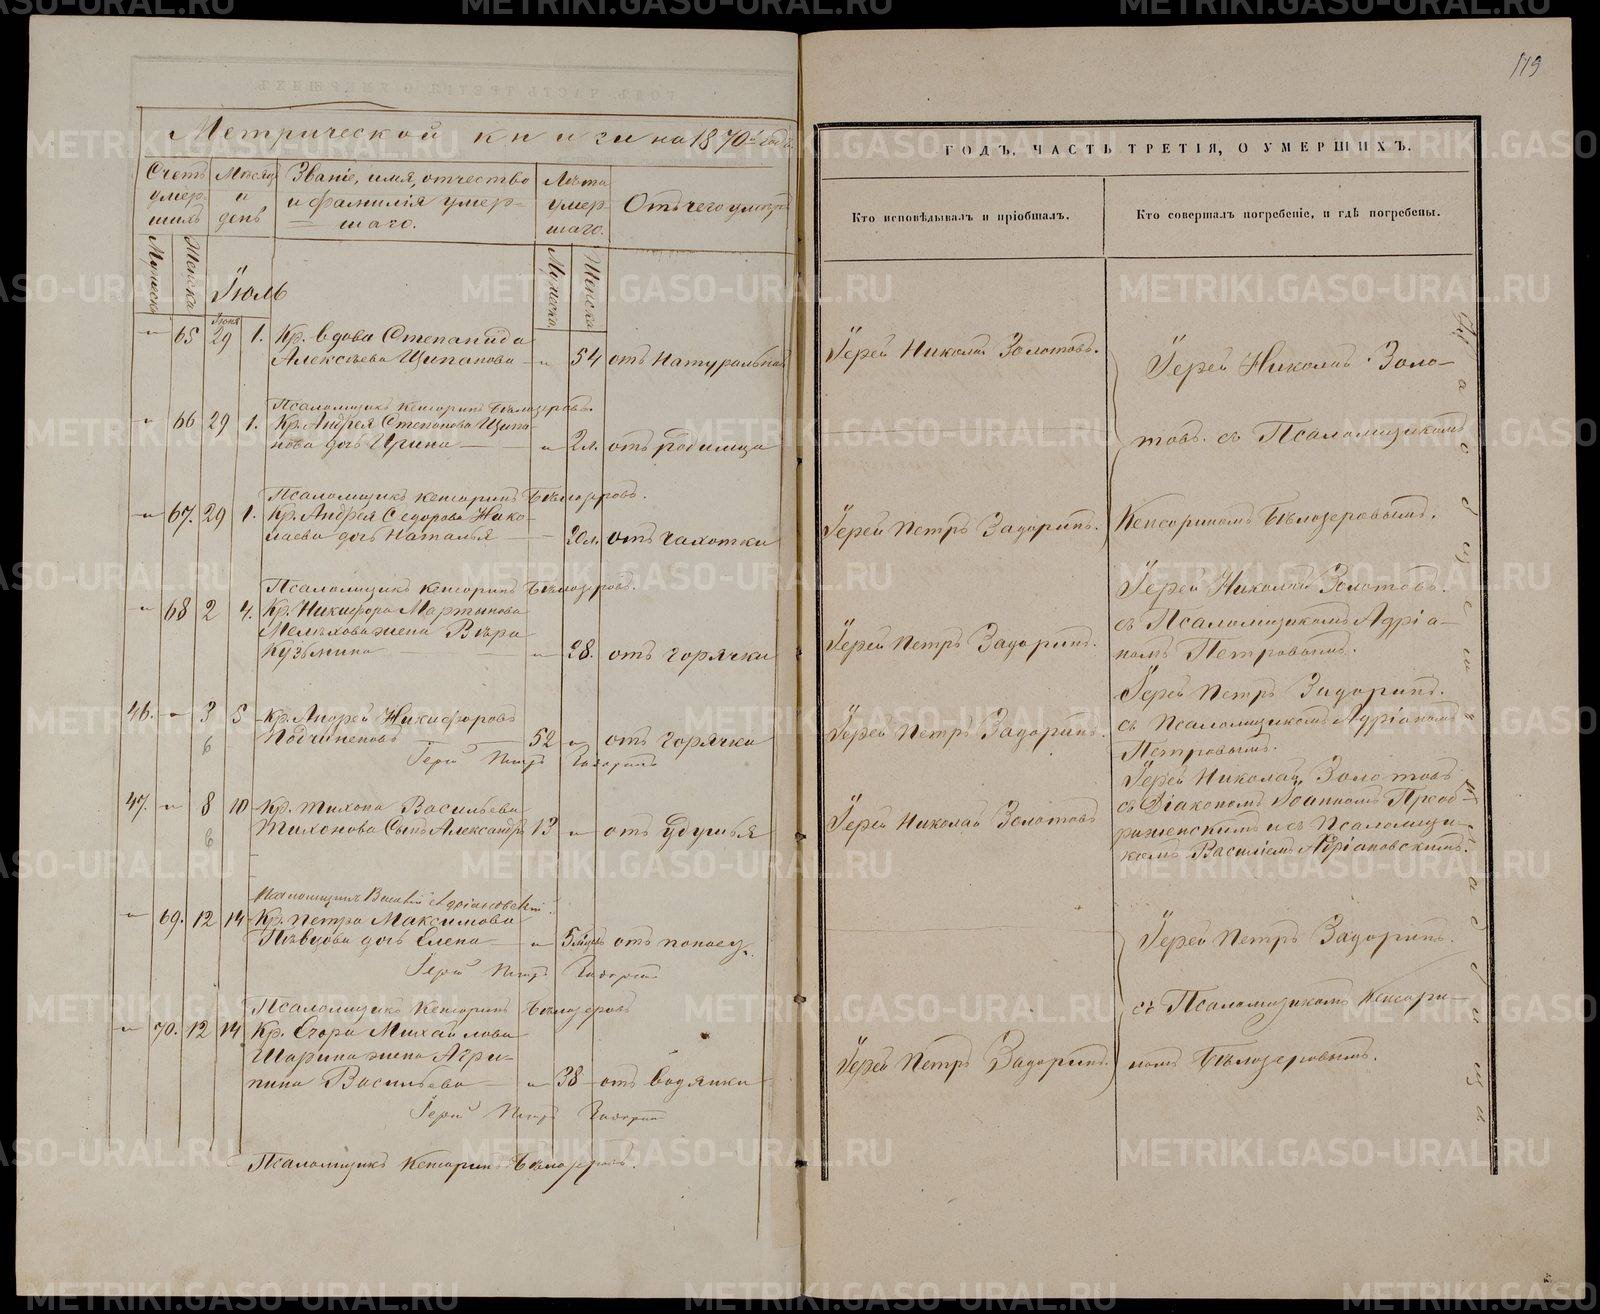 179
Метрической книги на 1870й годъ
Счетъ умер-шихъ
Мѣсяцъ и день
Званіе, имя, отчество
и фамилія умер-
шаго.
Лѣта умер-шаго.
Отъ чего умеръ
Мужеска
Женска
Мужеска
Женска
Іюль
Іюня
65 29 1. Кр. вдова Степанида
Алексѣева Щипанова 54 отъ Натуральной
Псаломщикъ Кенсоринъ Бѣлозеровъ.
66 29 1. Кр. Андрея Степанова Щипа-
нова дочь Ирина 2л. отъ родимца
Псаломщикъ Кенсоринъ Бѣлозеровъ.
67. 29 1. Кр. Андрея Сидорова Нико-
лаева дочь Наталья 20л. отъ чахотки
Псаломщикъ Кенсоринъ Бѣлозеровъ.
68 2 4. Кр. Никифора Мартынова
Мелехова жена Вѣра
Кузьмина 28. отъ горячки
46. 3 5 Кр. Андрей Никифоровъ
6
Подчиненовъ 52 отъ горячки
Іерей Петръ Задоринъ
47. 8 10 Кр. Тихона Васильева
6
Тихонова сынъ Александръ 13 отъ удушья
Псаломщикъ Василій Адріановскій
69. 12 14 Кр. Петра Максимова
Пѣвцова дочь Елена 5 мѣсяц. отъ поноса
Іерей Петръ Задоринъ
Псаломщикъ Кенсоринъ Бѣлозеровъ
70. 12 14 Кр. Егора Михайлова
Шарина жена Агри-
пина Васильева 38 отъ водянки
Іерей Петръ Задоринъ
Псаломщикъ Кенсоринъ Бѣлозеровъ.
ГОДЪ, ЧАСТЬ ТРЕТІЯ, О УМЕРШИХЪ.
Кто исповѣдывалъ и пріобщалъ.
Кто совершалъ погребеніе, и гдѣ погребены.
Іерей Николай Золотовъ.
Іерей Николай Золо-
товъ. съ Псаломщикомъ
Іерей Петръ Задоринъ.
Кенсориномъ Бѣлозеровымъ.
Іерей Николай Золотовъ.
съ Псаломщикомъ Адріа-
Іерей Петръ Задоринъ.
номъ Петровымъ.
Іерей Петръ Задоринъ.
Іерей Петръ Задоринъ.
съ Псаломщикомъ Адріаномъ
Петровымъ.
Іерей Николай Золотовъ
Іерей Николай Золотовъ
съ Діакономъ Іоанномъ Преоб-
раженскимъ и съ Псаломщи-
комъ Василіемъ Адріановскимъ.
Іерей Петръ Задоринъ.
съ Псаломщикомъ Кенсори-
Іерей Петръ Задоринъ.
номъ Бѣлозеровымъ.
кладбищѣ
METRIKI.GASO-URAL.RU